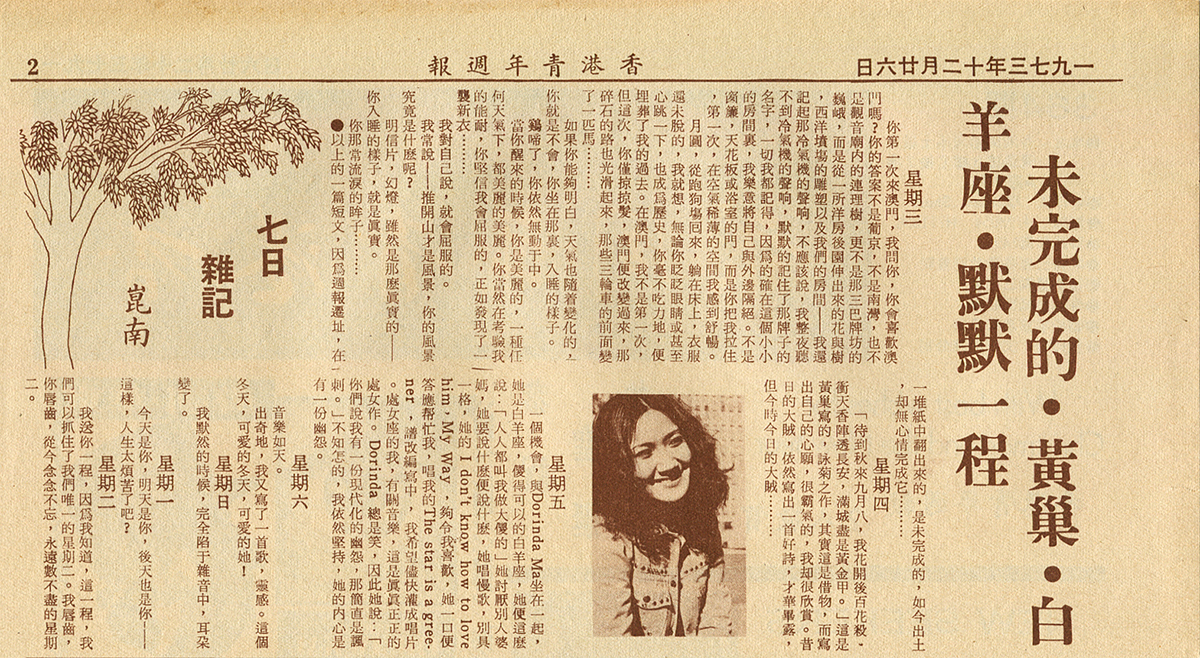 一九七三年十二月廿六日
香港青年週報
2
未完成的・黃巢・白
羊座・默默一程
七日
雜記
崑南
星期三
你第一次來澳門,我問你,你會喜歡澳
門嗎?你的答案不是葡京,不是南灣,也不
是觀音廟內的連理樹,更不是那三巴牌坊的
巍峨,而是從一所洋房後園伸出來的花與樹
,西洋墳塲的雕塑以及我們的房間——我還
記起那冷氣機的聲响,不應該說,我整夜聽
不到冷氣機的聲响,默默的記住了那牌子的
名字,一切我都記得,因爲的確在這個小小
的房間裏,我樂意將自己與外邊隔絕。不是
窗簾,天花板或浴室的門,而是你把我拉住
,第一次,在空氣稀薄的空間我感到舒暢。
月圓,從跑狗塲囘來,躺在床上,衣服
還未脫的,我就想,無論你眨眨眼睛或甚至
心跳一下,也成爲歷史,你毫不吃力地,便
埋葬了我的過去。在澳門,我不是第一次,
但這次,你僅掠掠髮,澳門便改變過來,那
碎石的路也光滑起來,那些三輪車的前面變
了一匹馬……
如果你能夠明白,天氣也隨着變化的,
你就是不會,你坐在那裏,入睡的樣子。
鷄啼了,你依然無動于中。
當你醒來的時候,你是美麗的,一種任
何天氣下,都美麗的美麗。你當然在考驗我
的能耐,你堅信我會屈服的,正如發現了一
襲新衣……
我對自己說,就會屈服的。
我常說——推開山才是風景,你的風景
究竟是什麼呢?
明信片,幻燈,雖然是那麼眞實的——
你入睡的樣子,就是眞實。
你那常流淚的眸子……
●以上的一篇短文,因爲週報遷址,在
一堆紙中翻出來的,是未完成的,如今出土
,却無心情完成它……
星期四
「待到秋來九月八,我花開後百花殺,
衝天香陣透長安,滿城盡是黃金甲。」這是
黃巢寫的,詠菊之作,其實這是借物,而寫
出自己的心願,很霸氣的,我却很欣賞。昔
日的大賊,依然寫出一首好詩,才華畢露,
但今時今日的大賊……
星期五
一個機會,與Dorinda Ma坐在一起,
她是白羊座,傻得可以的白羊座,她便這麼
說:「人人都叫我做大傻的」她討厭別人婆
媽,她要說什麼便說什麼,她唱慢歌,別具
一格,她的I don't know how to love
him,My Way,夠令我喜歡,她一口便
答應幫忙我,唱我的The star is a gree-
ner,譜改編寫中,我希望儘快灌成唱片
。處女座的我,有關音樂,這是眞眞正正的
處女作。Dorinda 總是笑,因此她說:「
你們說我有一份現代化的幽怨,那簡直是諷
刺。」不知怎的,我依然堅持,她的內心是
有一份幽怨。
星期六
音樂如天。
出奇地,我又寫了一首歌,靈感,這個
冬天,可愛的冬天,可愛的她!
星期日
我默然的時候,完全陷于雜音中,耳朶
變了。
星期一
今天是你,明天是你,後天也是你——
這樣,人生太煩苦了吧?
星期二
我送你一程,因爲我知道,這一程,我
們可以抓住了我們唯一的星期二。我唇齒,
你唇齒,從今念念不忘,永遠數不盡的星期
二。